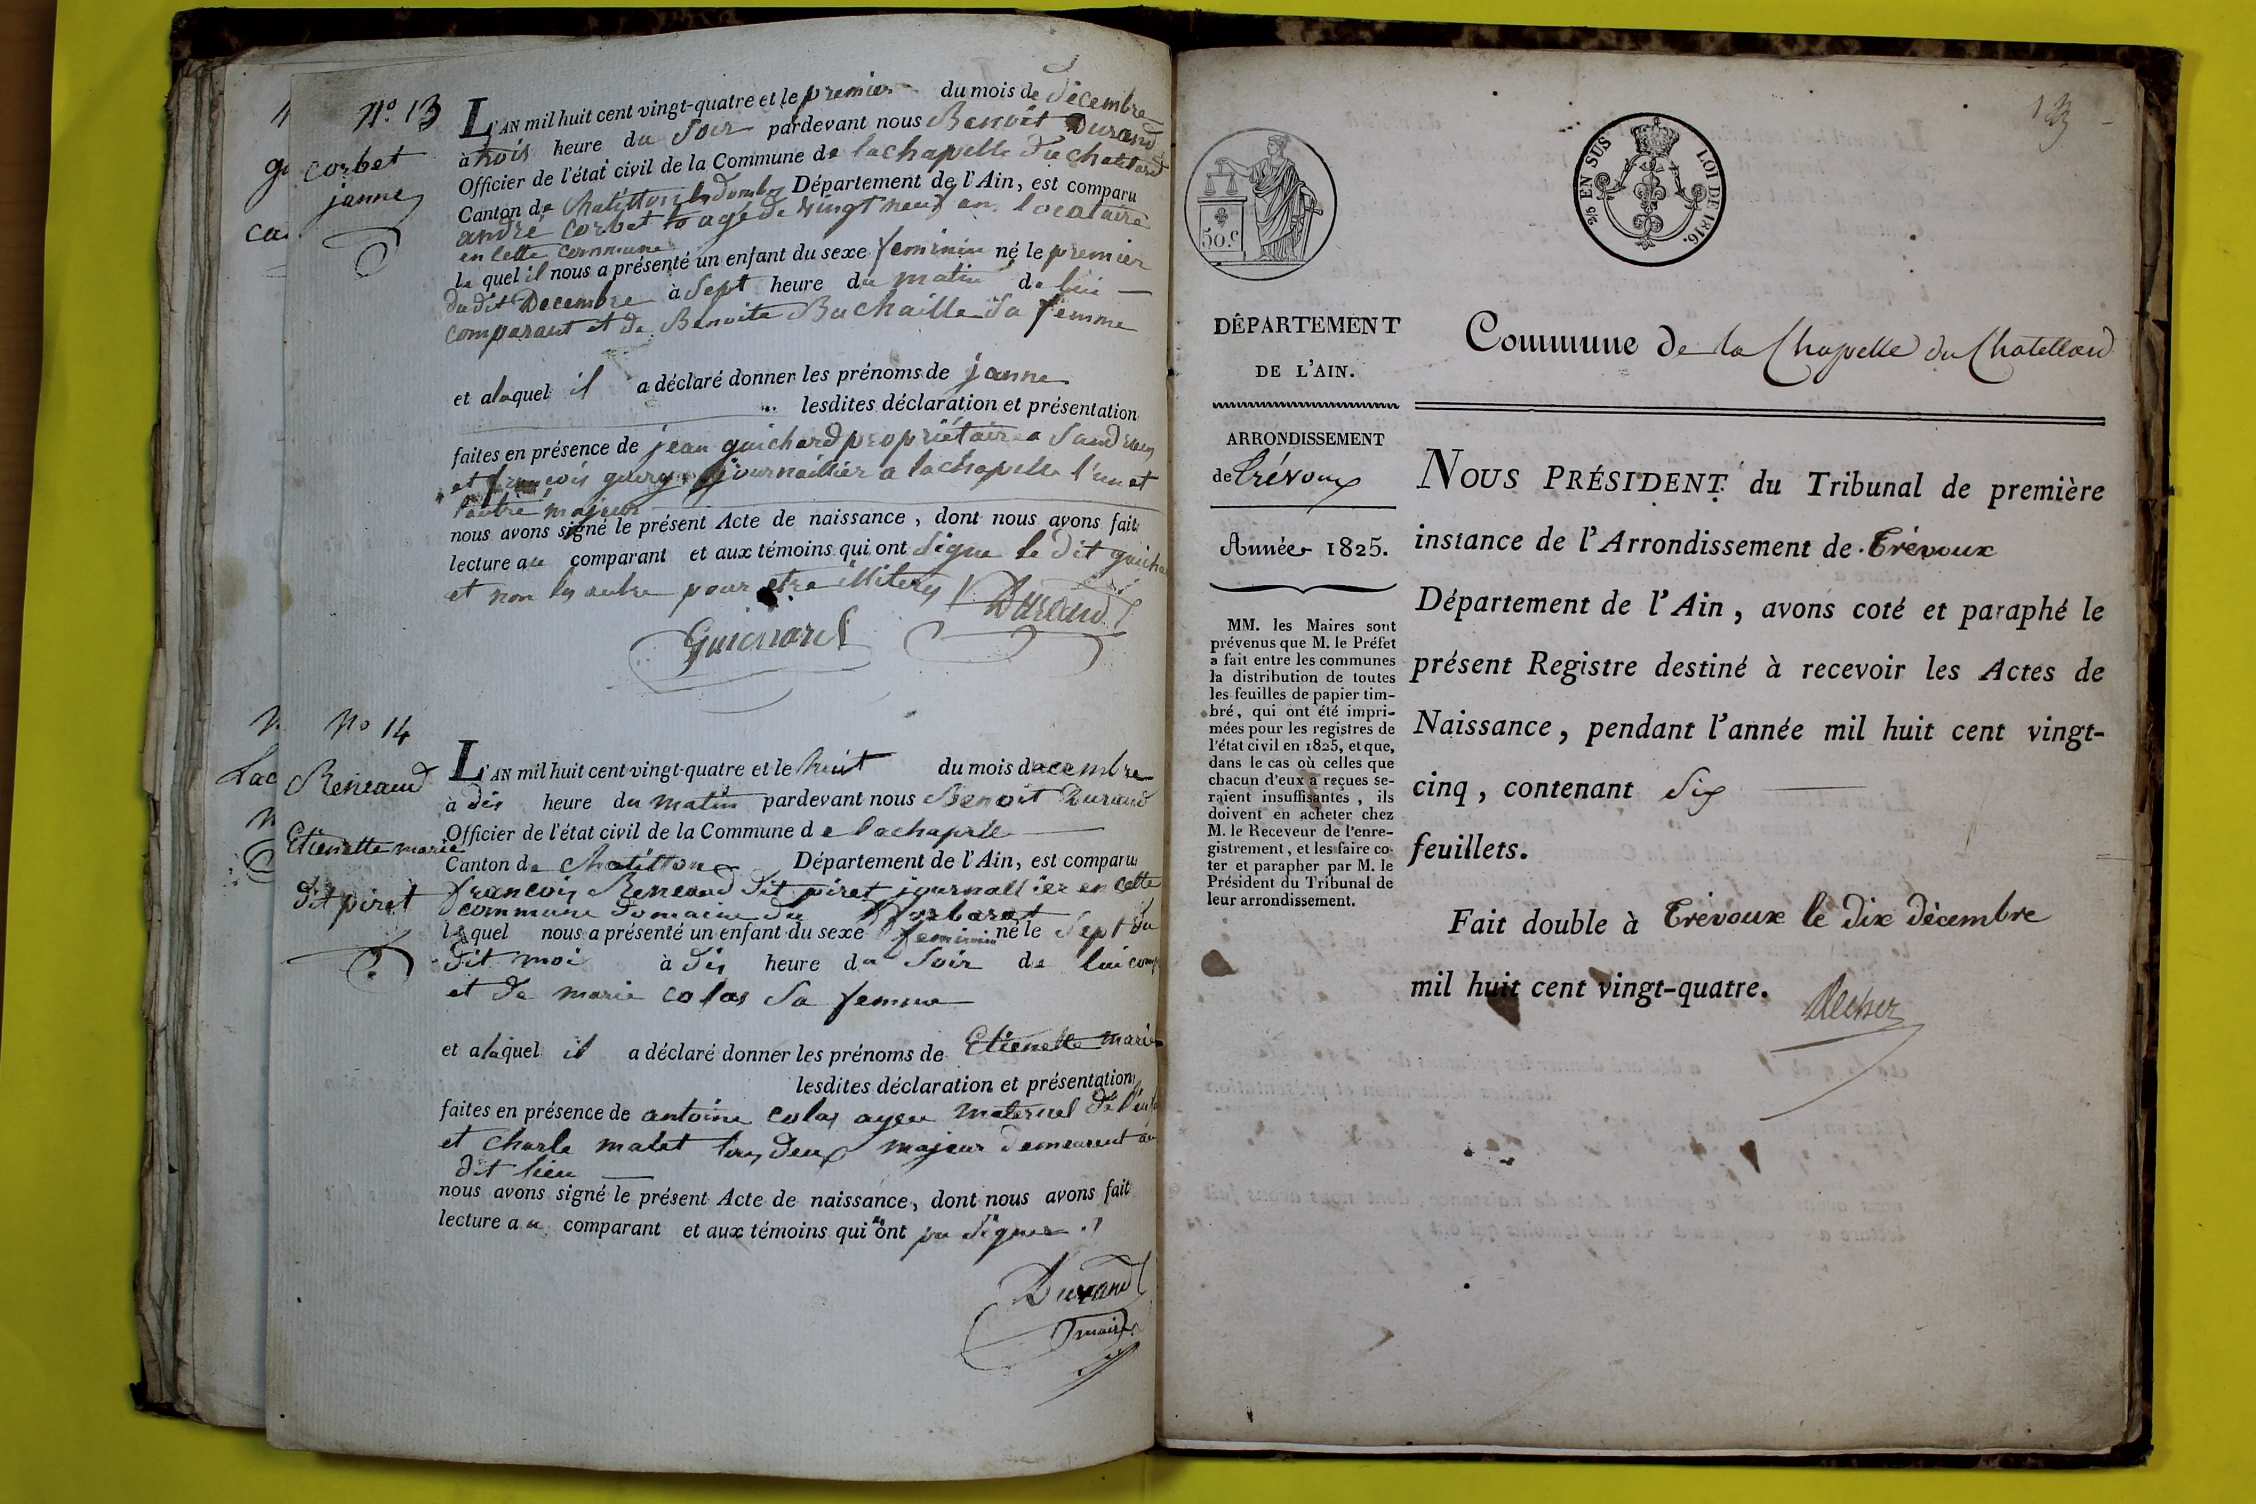 N.o 13
corbet
janne
L'AN mil huit cent vingt-quatre et le premier du mois de decembre
à trois heure du Soir pardevant nous Benoit Durand
Officier de l'état civil de la Commune de lachapelle du chatelard
Canton de Chatillon les dombes Département de l'Ain, est comparu
andré corbet agé de vingt neuf an locataire
en cette commune
le quel il nous a présenté un enfant du sexe feminin né le premier
du dit Decembre à Sept heure du matin de lui
comparant et de Benoite Buchaille Sa femme
et alaquel il a déclaré donner les prénoms de janne
lesdites déclaration et présentation
faites en présence de jean guichard propriétaire a Sandrans
et françois guery journaillier a lachapelle l'un et
l'autre majeur
nous avons signé le présent Acte de naissance, dont nous avons fait
lecture au comparant et aux témoins qui ont Signe le dit guicha
et non les autre pour etre illiterés
Durand
Guichard
No 14
Reneaud
Etienette marie
dit piret
L'AN mil huit cent vingt-quatre et le huit du mois decembre
à dis heure du matin pardevant nous Benoit Durand
Officier de l'état civil de la Commune de lachapelle
Canton de chatillon Département de l'Ain, est comparu
francois Reneaud dit piret journallier en cette
commune domaine du
lequel nous a présenté un enfant du sexe feminin né le Sept du
dit moi à dis heure du Soir de lui comp
et de marie colas Sa femme
et alaquel il a déclaré donner les prénoms de Etienette marie
lesdites déclaration et présentation
faites en présence de antoine colas ayeu maternel de l'enfa
et charle malet tous deux majeur demeurent au
dit lieu
nous avons signé le présent Acte de naissance, dont nous avons fait
lecture au comparant et aux témoins qui ont pu Signer
Durand
maire
50.c
25 EN SUS LOI DE 1816.
DÉPARTEMENT
DE L'AIN.
ARRONDISSEMENT
de Trévoux
Année 1825.
MM. les Maires sont
prévenus que M. le Préfet
a fait entre les communes
la distribution de toutes
les feuilles de papier tim-
bré, qui ont été impri-
mées pour les registres de
l'état civil en 1825, et que,
dans le cas où celles que
chacun d'eux a reçues se-
raient insuffisantes, ils
doivent en acheter chez
M. le Receveur de l'enre-
gistrement, et les faire co-
ter et parapher par M. le
Président du Tribunal de
leur arrondissement.
Commune de la Chapelle du Chatellard
NOUS PRÉSIDENT du Tribunal de première
instance de l'Arrondissement de Trévoux
Département de l'Ain, avons coté et paraphé le
présent Registre destiné à recevoir les Actes de
Naissance, pendant l'année mil huit cent vingt-
cinq, contenant Six
feuillets.
Fait double à Trévoux le dix décembre
mil huit cent vingt-quatre.